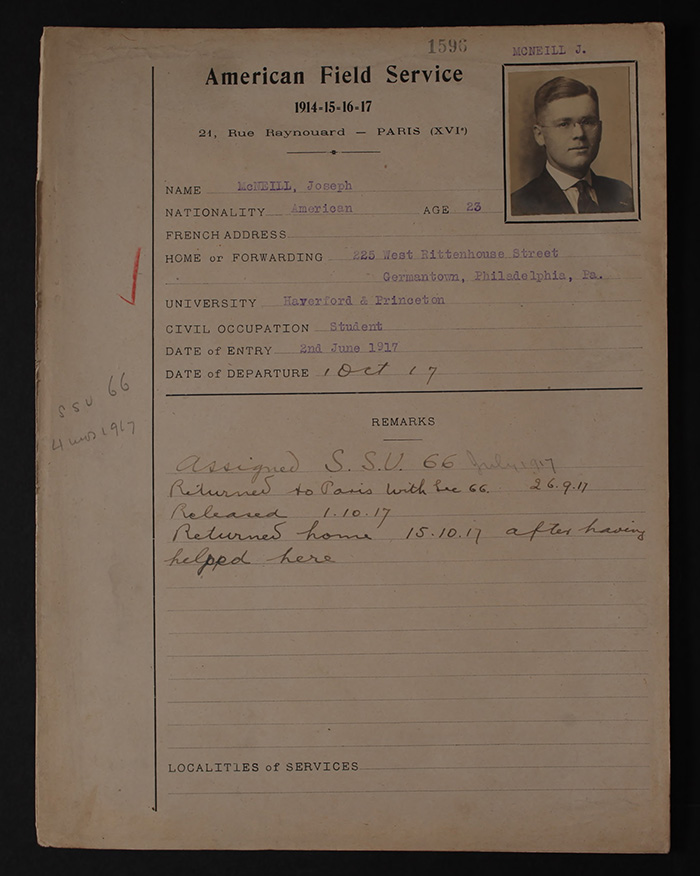 1596
MCNEILL J.
American Field Service
1914-15-16-17
21, Rue Raynouard — PARIS (XVIe)
NAME McNEILL, Joseph
NATIONALITY American AGE 23
FRENCH ADDRESS
HOME or FORWARDING 225 West Rittenhouse Street
Germantown, Philadelphia, Pa.
UNIVERSITY Haverford & Princeton
CIVIL OCCUPATION Student
DATE of ENTRY 2nd June 1917
DATE of DEPARTURE 1 Oct 17
SSU 66
4 mos 1917
REMARKS
Assigned S.S.U. 66 July 1917
Returned to Paris with Sec 66. 26.9.17
Released 1.10.17
Returned home 15.10.17 after having
helped here
LOCALITIES of SERVICES